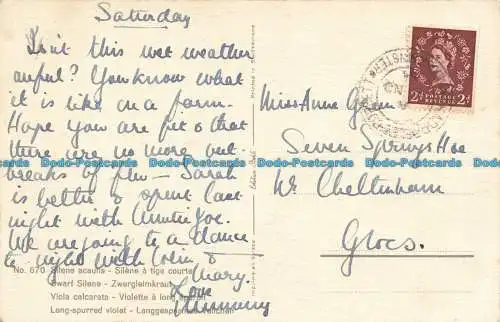 Saturday
Isn't this wet weather
awful? You know what
it is like on a farm.
Hope you are fit & that
there are no more out-
breaks of flu - Sarah
is better & spent last
night with Auntie Joe.
We are going to a dance
to night with Colin &
Mary.
Love
Mummy
No. 670 Silene acaulis - Silène à tige courte
Dwarf Silene - Zwergleimkraut
Viola calcarata - Violette à long
Long-spurred violet - Langgesporntes Veilchen
2½d POSTAGE REVENUE 2½d
Miss Anne
Seven Springs Hse
Nr. Cheltenham
Glocs.
Postcards Postcards Postcards Postcards Postcards